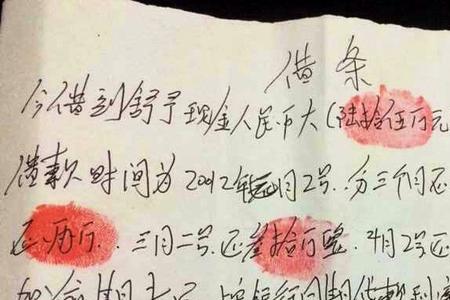 借条
今借到舒予现金人民币大(陆拾伍万元
借款时间为2012年2月2号.分三个月还
还.伍万.三月二号.还叁拾万整.4月2号还